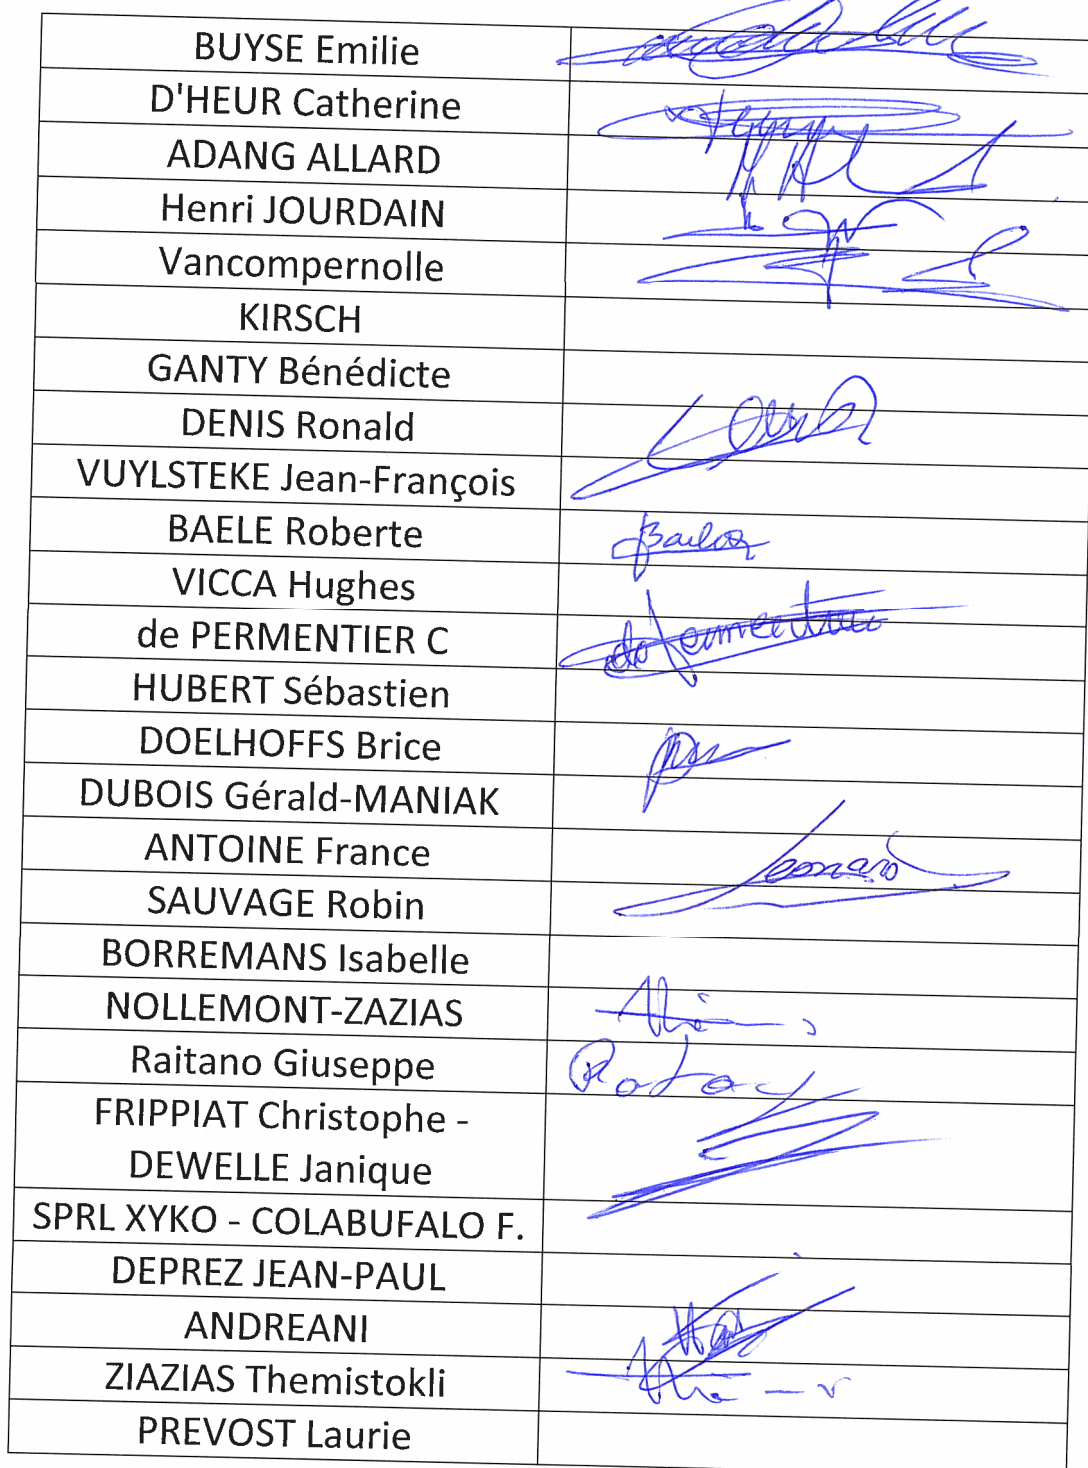 BUYSE Emilie
D'HEUR Catherine
ADANG ALLARD
Henri JOURDAIN
Vancompernolle
KIRSCH
GANTY Bénédicte
DENIS Ronald
VUYLSTEKE Jean-François
BAELE Roberte
VICCA Hughes
de PERMENTIER C
HUBERT Sébastien
DOELHOFFS Brice
DUBOIS Gérald-MANIAK
ANTOINE France
SAUVAGE Robin
BORREMANS Isabelle
NOLLEMONT-ZAZIAS
Raitano Giuseppe
FRIPPIAT Christophe -
DEWELLE Janique
SPRL XYKO - COLABUFALO F.
DEPREZ JEAN-PAUL
ANDREANI
ZIAZIAS Themistokli
PREVOST Laurie